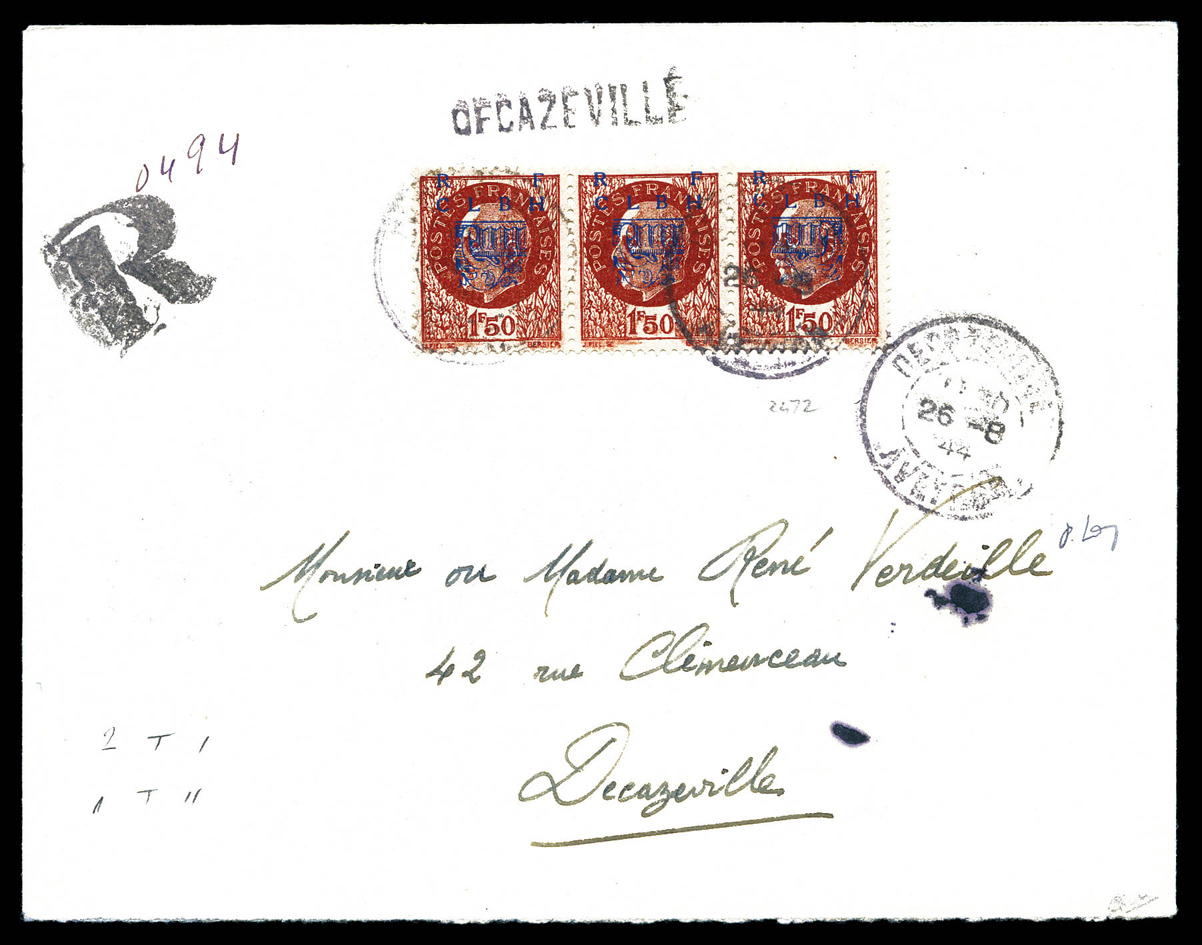 DECAZEVILLE
0494
R
R F R F R F
C L B H C L B H C L B H
POSTES FRANÇAISES POSTES FRANÇAISES POSTES FRANÇAISES
1F50 1F50 1F50
BERSIER J.PIEL.SC BERSIER
26 -8
2472
DECAZEVILLE
26 -8
44
AVEYRON
Monsieur ou Madame René Verdeille
42 rue Clémenceau
Decazeville
2 T I
1 T II